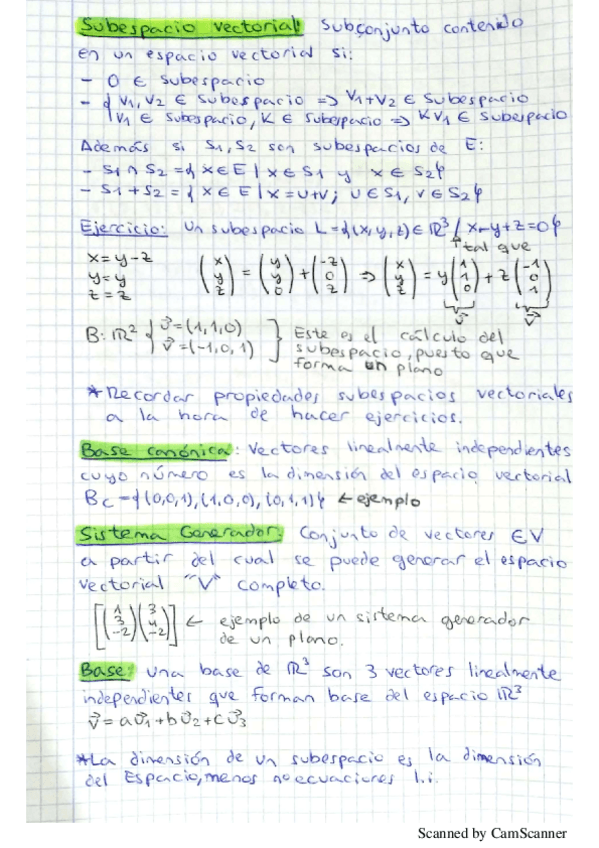 Subespacio vectorial: Subconjunto contenido
en un espacio vectorial si:
- 0 ∈ subespacio
- { V1, V2 ∈ subespacio => V1+V2 ∈ subespacio
V1 ∈ subespacio, K ∈ subespacio => KV1 ∈ subespacio
Además si S1, S2 son subespacios de E:
- S1 ∩ S2 = { x ∈ E | x ∈ S1 y x ∈ S2 }
- S1 + S2 = { x ∈ E | x = u+v; u ∈ S1, v ∈ S2 }
Ejercicio: Un subespacio L = {(x,y,z) ∈ ℝ³ / x-y+z=0}
↑ tal que
x = y-z
y = y
z = z
(x y z) = (y y 0) + (-z 0 z) => (x y z) = y (1 1 0) + z (-1 0 1)
v⃗ v⃗
B: ℝ² { v⃗ = (1,1,0)
v⃗ = (-1,0,1) }
Este es el cálculo del
subespacio, puesto que
forma un plano
* Recordar propiedades subespacios vectoriales
a la hora de hacer ejercicios.
Base canónica: Vectores linealmente independientes
cuyo número es la dimensión del espacio vectorial
Bc = {(0,0,1), (1,0,0), (0,1,1)} ← ejemplo
Sistema Generador: Conjunto de vectores ∈ V
a partir del cual se puede generar el espacio
vectorial "V" completo.
[(1 3 -2) (3 4 -2)] ← ejemplo de un sistema generador
de un plano.
Base: una base de ℝ³ son 3 vectores linealmente
independientes que forman base del espacio ℝ³
v⃗ = a v⃗1 + b v⃗2 + c v⃗3
* La dimensión de un subespacio es la dimensión
del Espacio, menos nº ecuaciones l.i.
Scanned by CamScanner